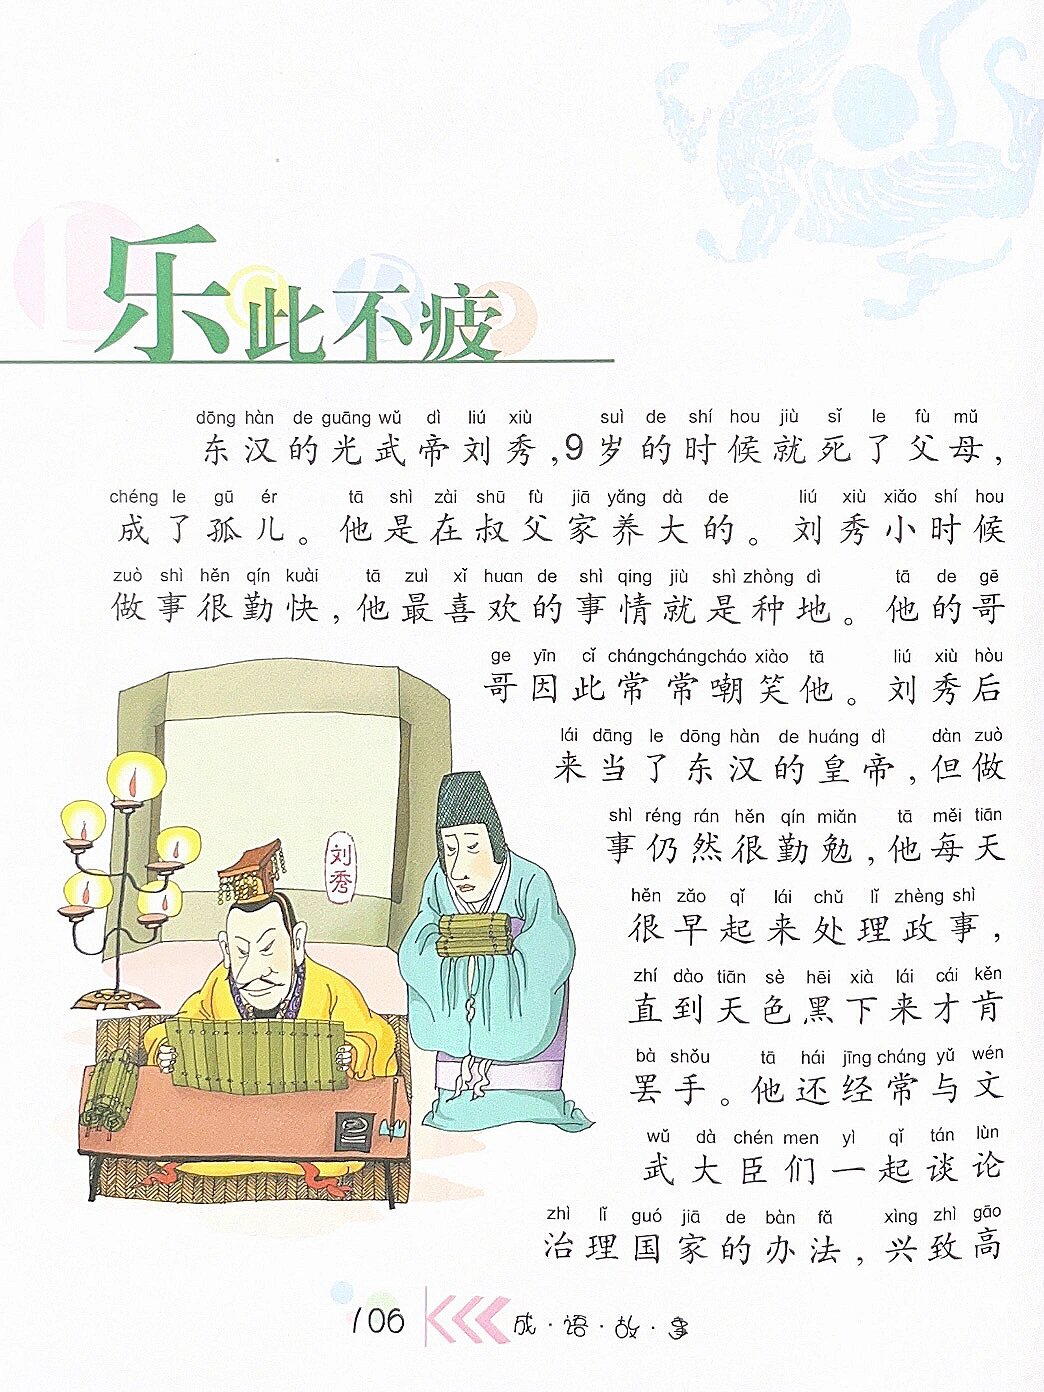 乐此不疲
dōng hàn de guāng wǔ dì liú xiù suì de shí hou jiù sǐ le fù mǔ
东汉的光武帝刘秀,9岁的时候就死了父母,
chéng le gū ér tā shì zài shū fù jiā yǎng dà de liú xiù xiǎo shí hou
成了孤儿。他是在叔父家养大的。刘秀小时候
zuò shì hěn qín kuài tā zuì xǐ huan de shì qing jiù shì zhòng dì tā de gē
做事很勤快,他最喜欢的事情就是种地。他的哥
ge yīn cǐ chángchángcháo xiào tā liú xiù hòu
哥因此常常嘲笑他。刘秀后
lái dāng le dōng hàn de huáng dì dàn zuò
来当了东汉的皇帝,但做
shì réng rán hěn qín miǎn tā měi tiān
事仍然很勤勉,他每天
hěn zǎo qǐ lái chǔ lǐ zhèng shì
很早起来处理政事,
zhí dào tiān sè hēi xià lái cái kěn
直到天色黑下来才肯
bà shǒu tā hái jīng cháng yǔ wén
罢手。他还经常与文
wǔ dà chén men yì qǐ tán lùn
武大臣们一起谈论
zhì lǐ guó jiā de bàn fǎ xìng zhì gāo
治理国家的办法,兴致高
刘秀
106 成·语·故·事